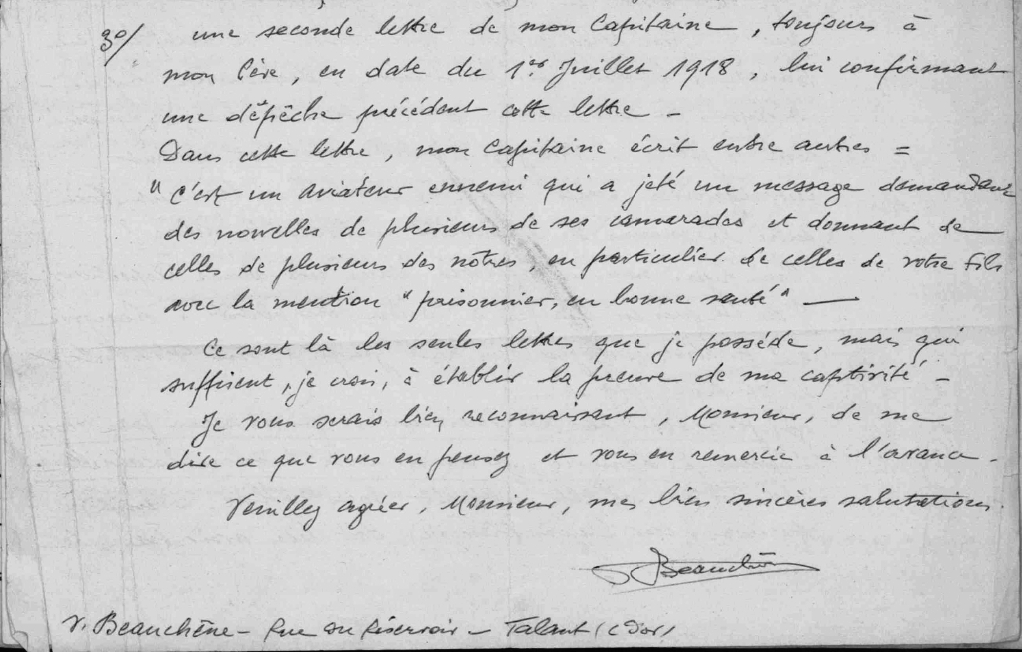 3°/ une seconde lettre de mon Capitaine, toujours à
mon Père, en date du 1er Juillet 1918, lui confirmant
une dépêche précédent cette lettre -
Dans cette lettre, mon Capitaine écrit entre autres =
"C'est un aviateur ennemi qui a jeté un message demandant
des nouvelles de plusieurs de ses camarades et donnant de
celles de plusieurs des nôtres, en particulier de celles de votre fils
avec la mention "prisonnier, en bonne santé" —
Ce sont là les seules lettres que je possède, mais qui
suffisent, je crois, à établir la preuve de ma captivité -
Je vous serais bien reconnaissant, Monsieur, de me
dire ce que vous en pensez et vous en remercie à l'avance -
Veuillez agréer, Monsieur, mes bien sincères salutations.
Beauchêne
V. Beauchêne - Rue du Réservoir - Talant (C d'or)